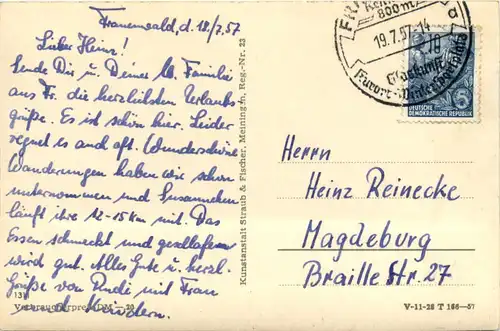 Frauenwald, d. 18/7.57
Lieber Heinz!
Sende Dir u. Deiner lb. Familie
aus Fr. die herzlichsten Urlaubs-
grüße. Es ist schön hier. Leider
regnet es auch oft. Wunderschöne
Wanderungen haben wir schon
unternommen und Susannchen
läuft ihre 12-15 km mit. Das
Essen schmeckt und geschlafen
wird gut. Alles Gute u. herzl.
Grüße von Rudi mit Frau
und Kindern.
131
Verbraucherpreis DM —.20
Kunstanstalt Straub & Fischer, Meiningen, Reg.-Nr. 23
800m
19.7.57-14
a
Kurort
DEUTSCHE
DEMOKRATISCHE REPUBLIK
Herrn
Heinz Reinecke
Magdeburg
Braille Str. 27
V-11-28 T 166—57